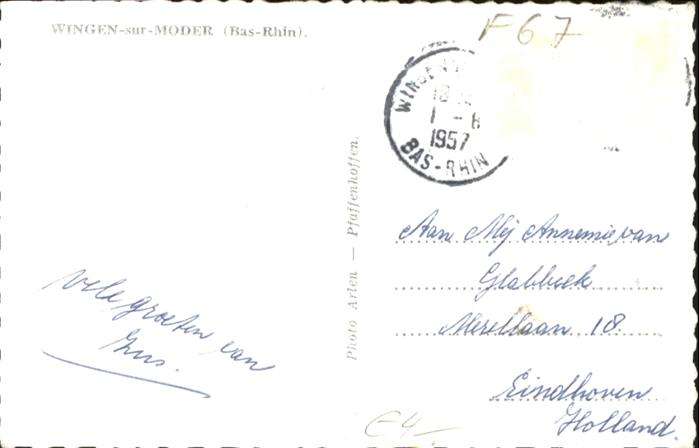 WINGEN-sur-MODER (Bas-Rhin).
F67
WINGEN
1 - 8
1957
BAS-RHIN
Photo Arlen — Pfaffenhoffen.
Aan Mej Annemie van
Glabbeek
Merellaan 18.
Eindhoven
Holland.
Vele groeten van
Gus.
E4-